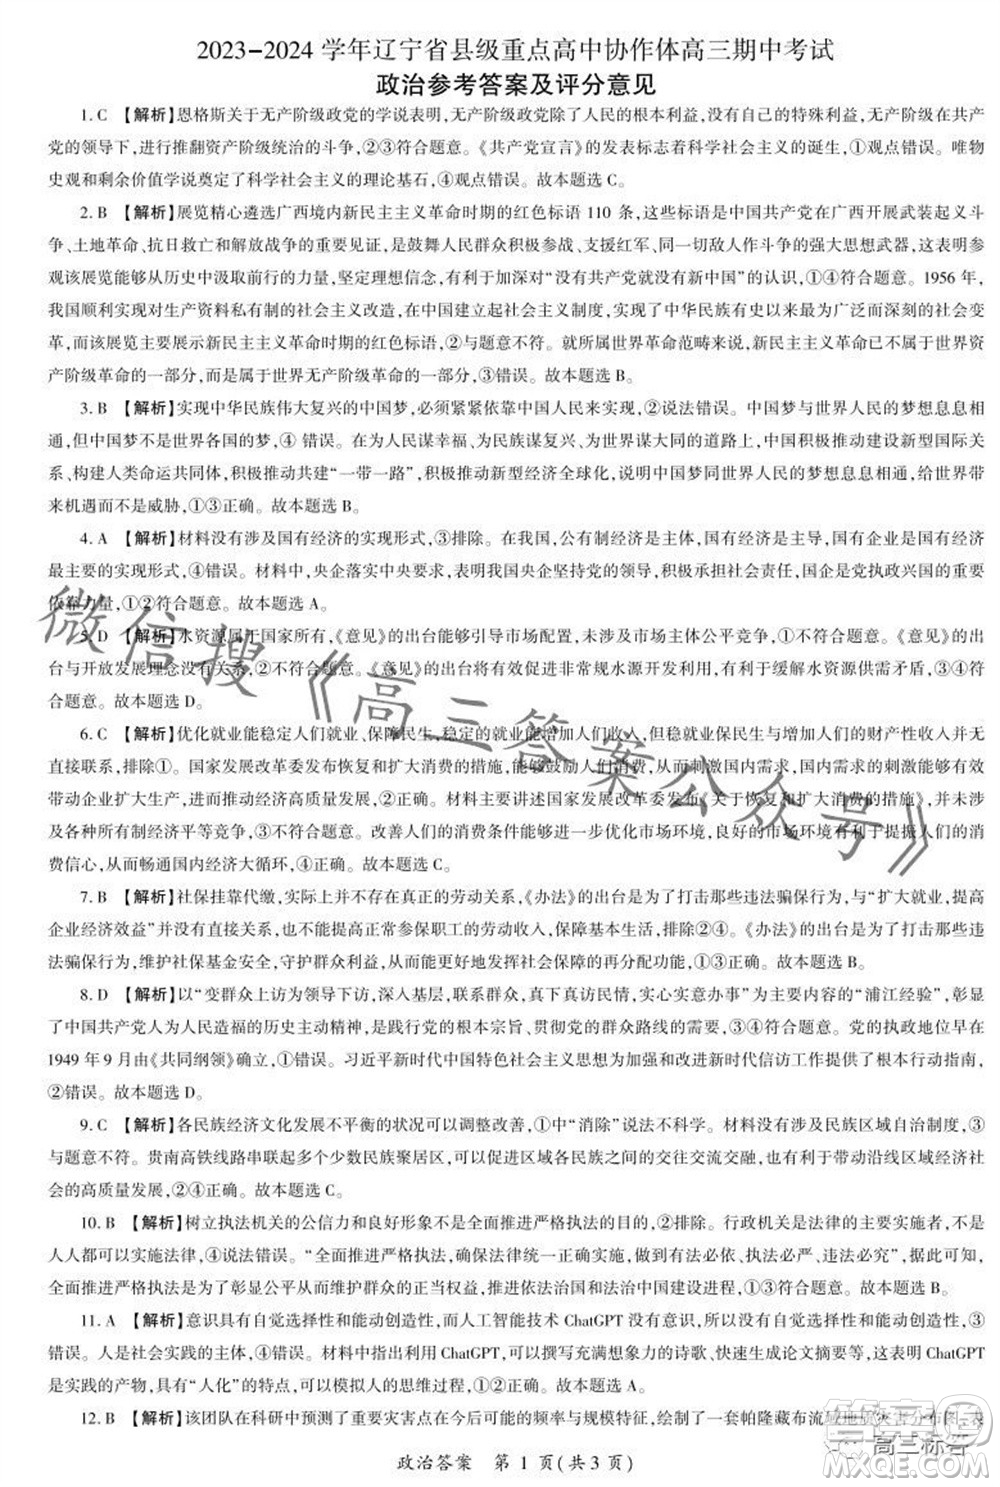 2023-2024 学年辽宁省县级重点高中协作体高三期中考试
政治参考答案及评分意见
1. C 【解析】恩格斯关于无产阶级政党的学说表明,无产阶级政党除了人民的根本利益,没有自己的特殊利益,在共产
党的领导下,进行推翻资产阶级统治的斗争,②③符合题意。《共产党宣言》的发表标志着科学社会主义的诞生,①观点错误。唯物
史观和剩余价值学说奠定了科学社会主义的理论基石,④观点错误。故本题选 C。
2. B 【解析】展览精心遴选广西境内新民主主义革命时期的红色标语 110 条,这些标语是中国共产党在广西开展武装起义斗
争、土地革命、抗日救亡和解放战争的重要见证,是鼓舞人民群众积极参战、支援红军、同敌人作斗争的强大思想武器,这表明参
观该展览能够从历史中汲取前行的力量,坚定理想信念,有利于进一步深化对“没有共产党就没有新中国”的认识,①④符合题意。1956 年,
我国顺利实现对生产资料私有制的社会主义改造,在全国建立起社会主义基本制度,实现了中华民族有史以来最为广泛而深刻的社会变
革,而这里主要展示新民主主义革命时期的红色标语,②与题意不符。就所属世界革命范畴来说,新民主主义革命是属于世界无
产阶级革命的一部分,而不是属于世界资
产阶级革命的一部分,③错误。故本题选 B。
3. B 【解析】实现中华民族伟大复兴的中国梦,必须紧紧依靠中国人民来实现,②说法错误。中国梦与世界人民的梦想息息相
通,但中国梦不是世界各国的梦,④ 错误。在为人民谋幸福、为民族谋复兴、为世界谋大同的道路上,中国积极推动建设新型国际关
系、构建人类命运共同体,积极推动共建“一带一路”,积极推动新型经济全球化,说明中国梦同世界人民的梦想息息相通,给世界带
来机遇而不是威胁,①③正确。故本题选 B。
4. A 【解析】材料没有涉及国有经济的实现形式,③排除。在我国,公有制经济是主体,国有经济是主导,国有企业是国有经济
最主要的实现形式,④排除。材料中,央企落实中央要求,表明我国国有企业坚持党的领导,积极承担社会责任,国企是党执政兴国的重要
依靠力量,①②符合题意。故本题选 A。
5. D 【解析】水资源属于国家所有,《意见》的出台能够引导市场配置,未涉及市场主体公平竞争,①不符合题意。《意见》的出
台与开放发展理念没有关系,②不符合题意。《意见》的出台能够促进非常规水源开发利用,有利于缓解水资源供需矛盾,③④符
合题意。故本题选 D。
6. C 【解析】优化就业能稳定人们就业、保障民生,稳定的就业能增加人们收入,但稳就业保民生与人们的财产性收入并无
直接关联,排除①。国家发展改革委发布恢复和扩大消费的措施,能够鼓励人们消费,从而刺激国内需求,内需的刺激能够有效
带动企业扩大生产,进而推动经济高质量发展,②正确。材料主要讲述国家发展改革委发布《关于恢复和扩大消费的措施》,并未涉
及各种所有制经济平等竞争,③排除。改善人们的消费条件能够进一步优化市场环境,良好的市场环境有利于提振人们的消
费信心,从而畅通国内经济大循环,④正确。故本题选 C。
7. B 【解析】社保挂靠代缴,实际上并不存在真正的劳动关系,《办法》的出台是为了打击那些违法骗保行为,与“扩大就业,提高
企业经济效益”并没有直接关系,也不能充分保障职工的劳动收入,保障基本生活,排除②④。《办法》的出台是为了打击那些违
法骗保行为,维护社保基金安全,守护群众利益,从而更好地发挥社会保障的再分配功能,①③正确。故本题选 B。
8. D 【解析】以“变群众上访为领导下访,深入基层,联系群众,真下真访民情,实心实意办事”为主要内容的“浦江经验”,彰显
了中国共产党人为人民造福的历史主动精神,是践行党的根本宗旨、贯彻党的群众路线的需要,③④正确。党的执政地位早在
1949 年 9 月由《共同纲领》确立,①错误。习近平新时代中国特色社会主义思想为加强和改进新时代信访工作提供了根本行动指南,
②错误。故本题选 D。
9. C 【解析】各民族经济文化发展不平衡的状况可以调整、缓解,①中“消除”说法不科学。材料没有涉及民族区域自治制度,③
与题意不符。贵南高铁线路串联起多个少数民族聚居区,可以促进区域各民族之间的交往交流交融,有利于带动沿线区域经济社
会的高质量发展,②④正确。故本题选 C。
10. B 【解析】树立执法机关的公信力和良好形象不是全面推进严格执法的目的,②排除。行政机关是法律的主要实施者,不是
人人都可以实施法律,④说法错误。“全面推进严格执法,确保法律统一正确实施,做到有法必依、执法必严、违法必究”,说明
全面推进严格执法是为了彰显公平从而维护人民群众的合法权益,推进依法治国和法治中国建设进程,①③符合题意。故本题选 B。
11. A 【解析】意识具有自觉选择性和能动创造性,而人工智能技术 ChatGPT 没有意识,所以没有自觉选择性和能动创造性,③
错误。人是社会实践的主体,④错误。材料中指出利用 ChatGPT,可以撰写充满想象力的诗歌、快速生成论文摘要等,这表明 ChatGPT
是实践的产物,具有“人化”的特点,可以模拟人的思维过程,①②正确。故本题选 A。
12. B 【解析】该团队在科研中预测了重要灾害点在今后可能的频率与规模特征,绘制了一套帕隆藏布流域地质灾害分布图,表
政治答案 第 1 页(共 3 页)
微信搜《高三答案公众号》
高三标答